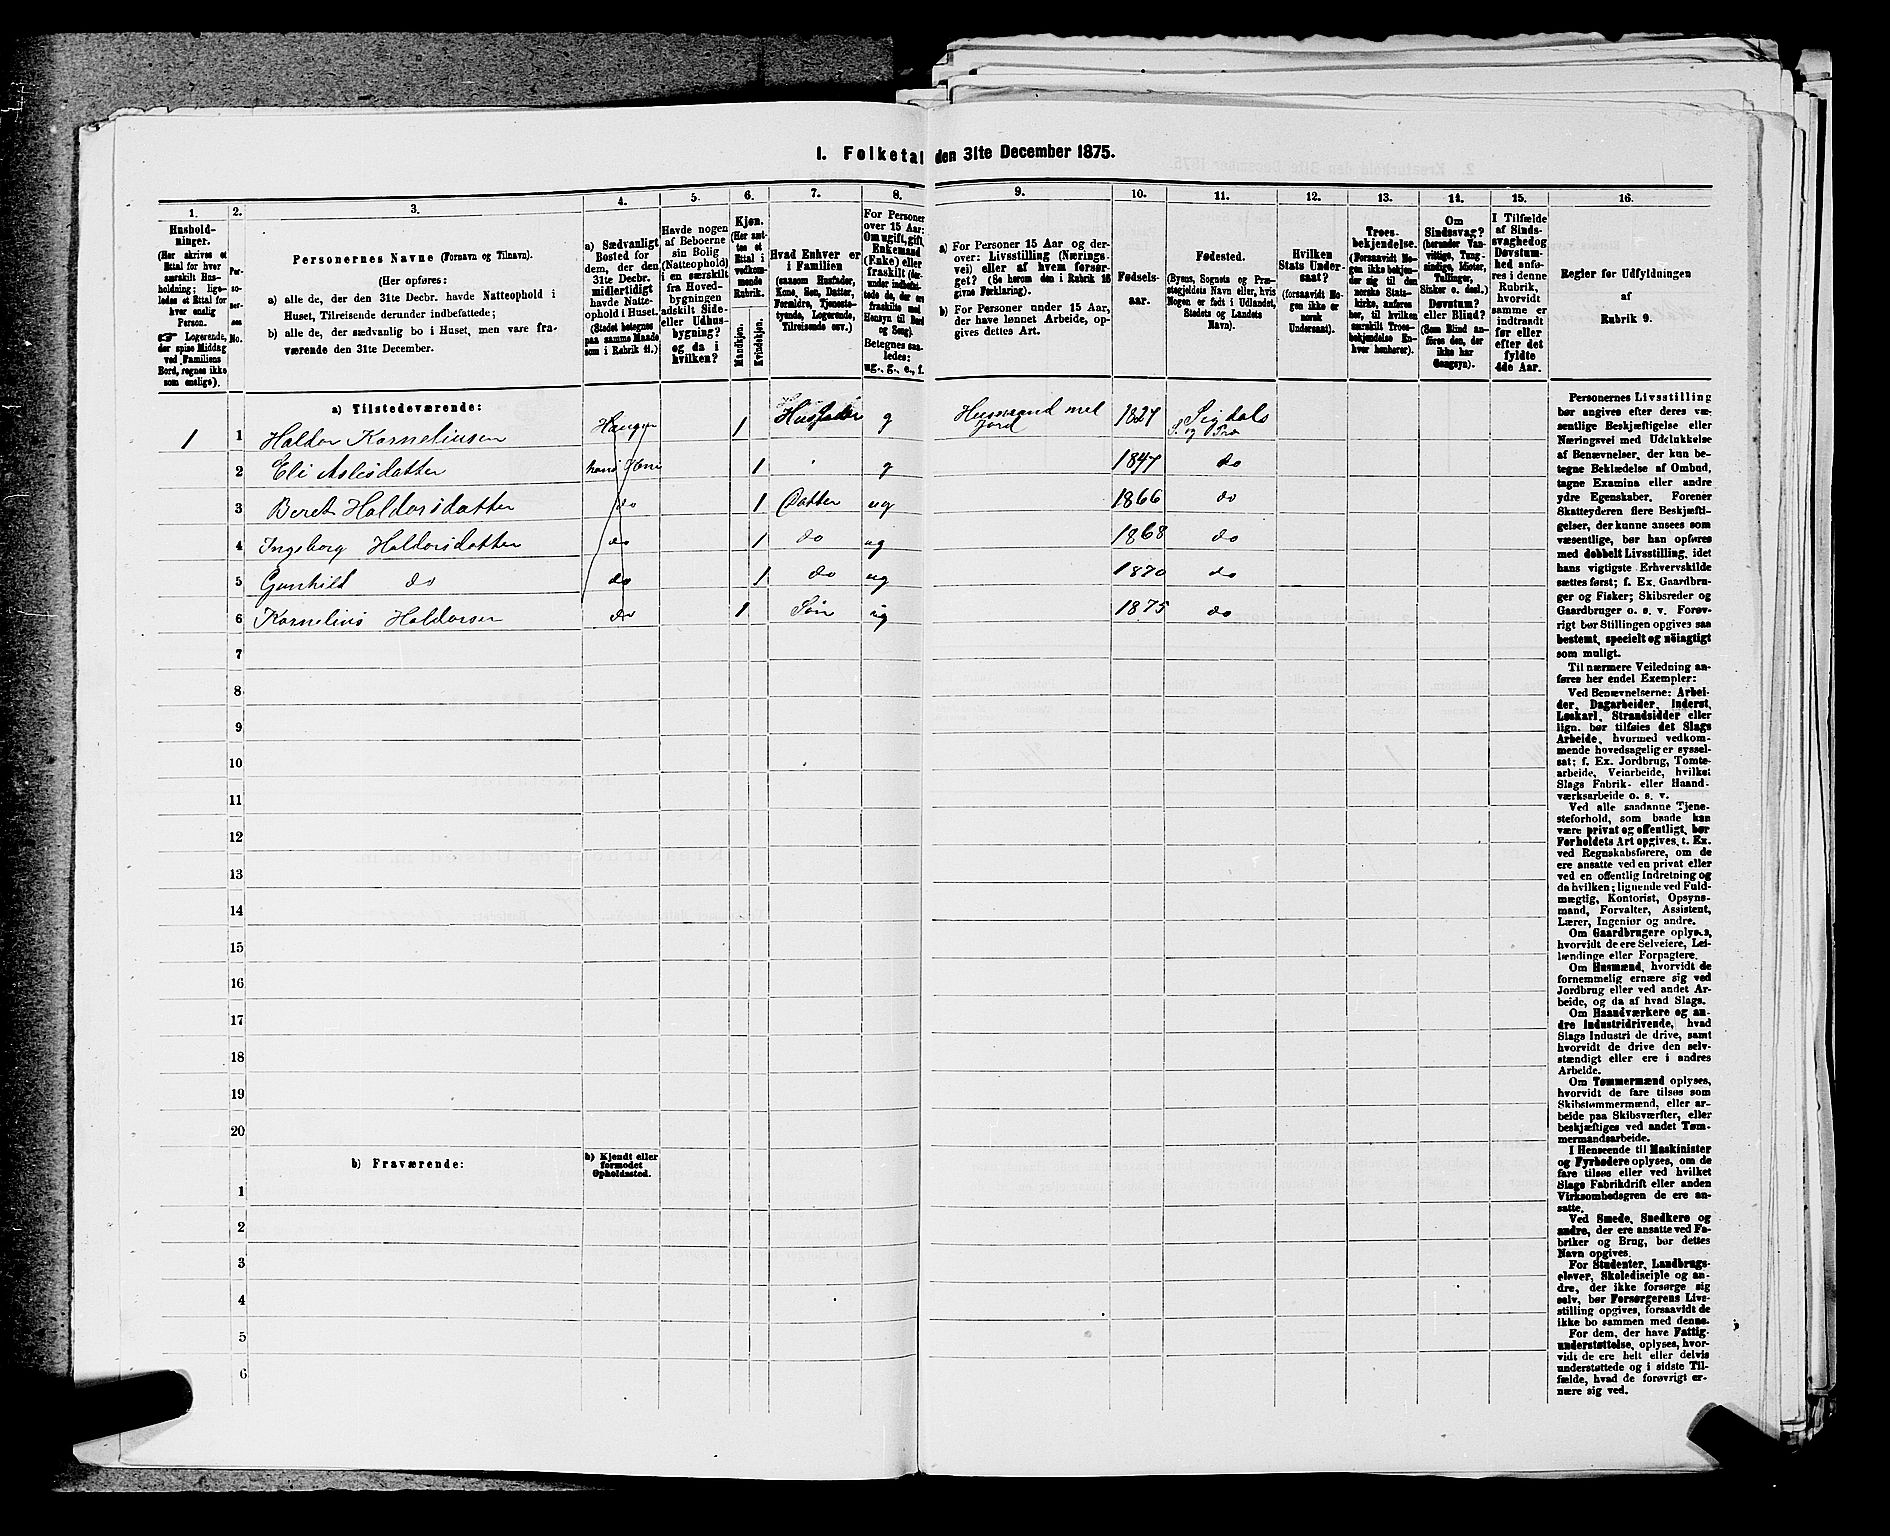 1. Folketal den 31te December 1875.
1. 2. 3. 4. 5. 6. 7. 8. 9. 10. 11. 12. 13. 14. 15. 16.
Hushold-
ninger.
(Her skrives et
Ettal for hver
særskilt Hus-
holdning; lige-
ledes et Ettal for
hver enslig
Person.
☞ Logerende,
der spise Middag
ved Familiens
Bord, regnes ikke
som enslige).
Per-
so-
ner-
nes
No.
Personernes Navne (Fornavn og Tilnavn).
(Her opføres:
a) alle de, der den 31te Decbr. havde Natteophold i
Huset, Tilreisende derunder indbefattede;
b) alle de, der sædvanlig bo i Huset, men vare fra-
værende den 31te December.
a) Sædvanligt
Bosted for
dem, der den
31te Decbr.
midlertidigt
havde Natte-
ophold i Huset.
(Stedet betegnes
paa samme Maade
som i Rubrik 11.)
Havde nogen
af Beboerne
sin Bolig
(Natteophold)
i en særskilt
fra Hoved-
bygningen
adskilt Side-
eller Udhus-
bygning?
og da i
hvilken?
Kjøn.
(Her sæt-
tes et
Ettal i
vedkom-
mende
Rubrik.
Mandkjøn.
Kvindekjøn.
Hvad Enhver er
i Familien
(saasom Husfader,
Kone, Søn, Datter,
Forældre, Tjeneste-
tyende, Logerende,
Tilreisende osv.)
For Personer
over 15 Aar:
Om ugift, gift,
Enkemand
(Enke) eller
fraskilt
Betegnes saa-
ledes:
ug., g., e., f.
a) For Personer 15 Aar og der-
over: Livsstilling (Nærings-
vei) eller af hvem forsør-
get? (Se herom den i Rubrik 16
givne Forklaring).
b) For Personer under 15 Aar,
der have lønnet Arbeide, op-
gives dettes Art.
Fødsels-
aar.
Fødested.
(Byens, Sognets og Præ-
stegjeldets Navn eller, hvis
Nogen er født i Udlandet,
Stedets og Landets
Navn).
Hvilken
Stats Under-
saat?
(forsaavidt No-
gen ikke er
norsk
Undersaat).
Troes-
bekjendelse.
(Forsaavidt No-
gen ikke bekjen-
der sig til den
norske Stats-
kirke, anføres
her, til hvilken
særskilt Troes-
bekjendelse En-
hver henhører).
Om
Sindssvag?
(herunder Van-
vittige, Tung-
sindige, Idioter,
Tullinger,
Sinker o. desl.)
Døvstum?
eller Blind?
(Som Blind an-
føres den, der
ikke har
Gangsyn).
I Tilfælde
af Sinds-
svaghed og
Døvstum-
hed anfø-
res i denne
Rubrik,
hvorvidt
samme er
indtraadt
før eller
efter det
fyldte
4de Aar.
Regler for Udfyldningen
af
Rubrik 9.
a) Tilstedeværende:
1 1 Haldor Kornelinsen Haugen 1 Husfader g Husmand med Jord 1827 Sigdals S. og Præ
2 Eli Aslesdatter 1 g 1847 do
3 Beret Haldorsdatter do 1 Datter ug 1866 do
4 Ingeborg Haldorsdatter do 1 do ug 1868 do
5 Gunhild do do 1 do ug 1870 do
6 Kornelius Haldorsen do 1 Søn ug 1875 do
7
8
9
10
11
12
13
14
15
16
17
18
19
20
b) Fraværende:
b) Kjendt eller
formodet
Opholdssted.
1
2
3
4
5
6
Personernes Livsstilling
bør angives efter deres væ-
sentlige Beskjæftigelse eller
Næringsvei med Udelukkelse
af Benævnelser, der kun be-
tegne Beklædelse af Ombud,
tagne Examina eller andre
ydre Egenskaber. Forener
Skatteyderen flere Beskjæfti-
gelser, der kunne ansees som
væsentlige, bør han opføres
med dobbelt Livsstilling, idet
hans vigtigste Erhvervskilde
sættes først; f. Ex. Gaardbru-
ger og Fisker; Skibsreder og
Gaardbruger o. s. v. Forøv-
rigt bør Stillingen opgives saa
bestemt, specielt og nöiagtigt
som muligt.
Til nærmere Veiledning an-
føres her endel Exempler:
Ved Benævnelserne: Arbei-
der, Dagarbeider, Inderst,
Løskarl, Strandsidder eller
lign. bør tilføies det Slags
Arbeide, hvormed vedkom-
mende hovedsagelig er syssel-
sat; f. Ex. Jordbrug, Tomte-
arbeide, Veiarbeide, hvilket
Slags Fabrik- eller Haand-
værksarbeide o. s. v.
Ved alle saadanne Tjene-
steforhold, som baade kan
være privat og offentligt, bør
Forholdets Art opgives, t. Ex.
ved Regnskabsførere, om de
ere ansatte ved en privat eller
ved en offentlig Indretning og
da hvilken; lignende ved Fuld-
mægtig, Kontorist, Opsyns-
mand, Forvalter, Assistent,
Lærer, Ingeniør og andre.
Om Gaardbrugere oplyses,
hvorvidt de ere Selveiere, Lei-
lændinge eller Forpagtere.
Om Husmænd, hvorvidt de
fornemmelig ernære sig ved
Jordbrug eller ved andet Ar-
beide, og da af hvad Slags.
Om Haandværkere og an-
dre Industridrivende, hvad
Slags Industri de drive, samt
hvorvidt de drive den selv-
stændigt eller ere i andres
Arbeide.
Om Tømmermænd oplyses,
hvorvidt de fare tilsøs som
Skibstømmermænd, eller ar-
beide paa Skibsværfter, eller
beskjæftiges ved andet Tøm-
mermandsarbeide.
I Henseende til Maskinister
og Fyrbødere oplyses, om de
fare tilsøs eller ved hvilket
Slags Fabrikdrift eller anden
Virksomhedsgren de ere an-
satte.
Ved Smede, Snedkere og
andre, der ere ansatte ved Fa-
briker og Brug, bør dettes
Navn opgives.
For Studenter, Landbrugs-
elever, Skoledisciple og an-
dre, der ikke forsørge sig
selv, bør Forsørgerens Livs-
stilling opgives, forsaavidt de
ikke bo sammen med denne.
For dem, der have Fattig-
understøttelse, oplyses, hvor-
vidt de ere helt eller delvis
understøttede og i sidste Til-
fælde, hvad de forøvrigt er-
nære sig ved.